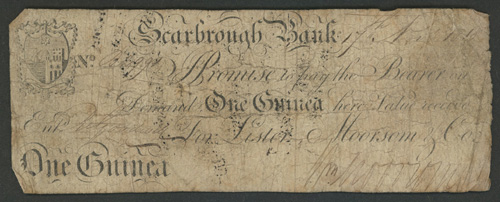 Scarbrough Bank 17th
No I Promise to pay the Bearer on
Demand One Guinea here Value received
Entd For Lister, Moorsom & Co.
One Guinea